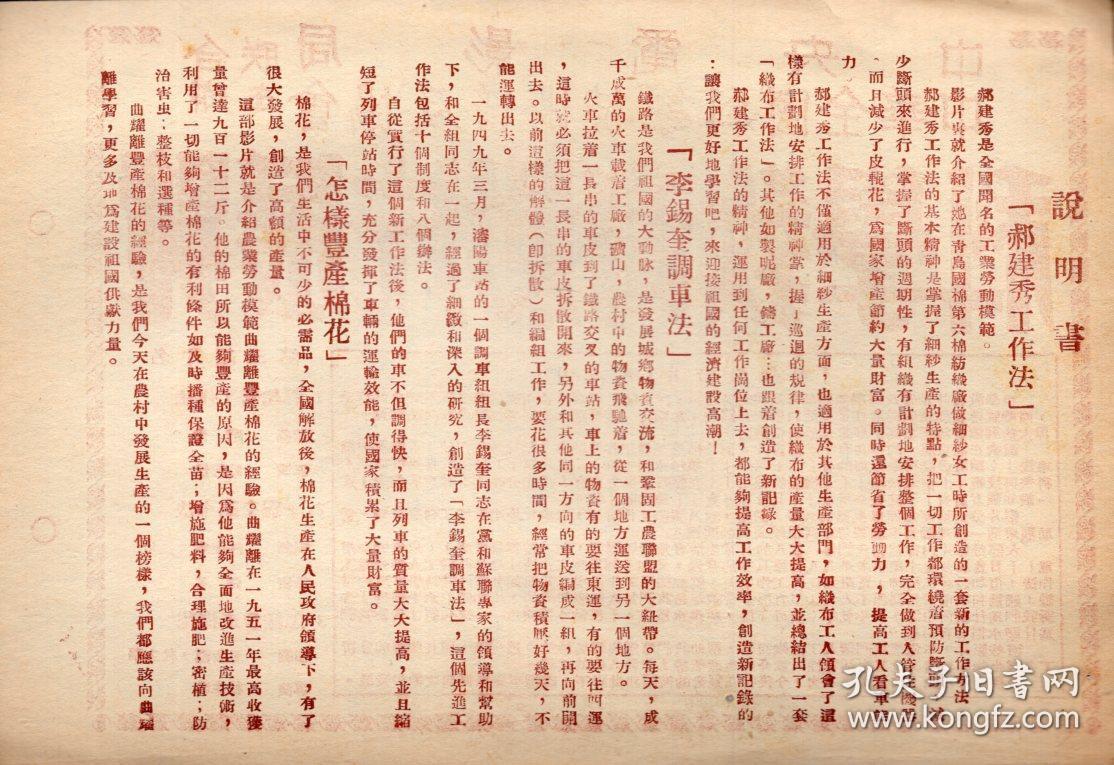 說明書
「郝建秀工作法」
郝建秀是全國聞名的工業勞動模範。
影片裏就介紹了她在青島國棉第六棉紡織廠做細紗女工時所創造的一套新的工作方法
郝建秀工作法的基本精神是掌握了細紗生產的特點，把一切工作都環繞着預防斷頭
少斷頭來進行，掌握了斷頭的週期性，有組織有計劃地安排整個工作，完全做到人管
而且減少了皮輥花，爲國家增產節約大量財富。同時還節省了勞動力，提高工人看車
力
郝建秀工作法不僅適用於細紗生產方面，也適用於其他生產部門，如織布工人領會了這
樣有計劃地安排工作的精神掌，握了巡迴的規律，使織布的產量大大提高，並總結出了一套
「織布工作法」。其他如製呢廠，鑄工廠…也跟着創造了新記錄。
郝建秀工作法的精神，運用到任何工作崗位上去，都能夠提高工作效率，創造新記錄的
：讓我們更好地學習吧，來迎接祖國的經濟建設高潮！
「李錫奎調車法」
鐵路是我們祖國的大動脉，是發展城鄉物資交流，和鞏固工農聯盟的大紐帶。每天，成
千成萬的火車載着工廠，礦山，農村中的物資飛馳着，從一個地方運送到另一個地方。
火車拉着一長串的車皮到了鐵路交叉的車站，車上的物資有的要往東運，有的要往西運
，這時就必須把這一長串的車皮拆散開來，另外和其他同一方向的車皮編成一組，再向前開
出去。以前這樣的解體（即拆散）和編組工作，要花很多時間，經常把物資積壓好幾天，不
能運轉出去。
一九四九年三月，瀋陽車站的一個調車組組長李錫奎同志在黨和蘇聯專家的領導和幫助
下，和全組同志在一起，經過了細緻和深入的研究，創造了「李錫奎調車法」，這個先進工
作法包括十個制度和八個辦法。
自從實行了這個新工作法後，他們的車不但調得快，而且列車的質量大大提高，並且縮
短了列車停站時間，充分發揮了車輛的運輸效能，使國家積累了大量財富。
「怎樣豐產棉花」
棉花，是我們生活中不可少的必需品，全國解放後，棉花生產在人民政府領導下，有了
很大發展，創造了高額的產量。
這部影片就是介紹農業勞動模範曲耀離豐產棉花的經驗。曲耀離在一九五一年最高收獲
量曾達九百一十二斤。他的棉田所以能夠豐產的原因，是因爲他能夠全面地改進生產技術，
利用了一切能夠增產棉花的有利條件如及時播種保證全苗；增施肥料，合理施肥；密植；防
治害虫；整枝和選種等。
曲耀離豐產棉花的經驗，是我們今天在農村中發展生產的一個榜樣，我們都應該向曲耀
離學習，更多及地爲建設祖國供獻力量。
孔夫子旧书网
www.kongfz.com